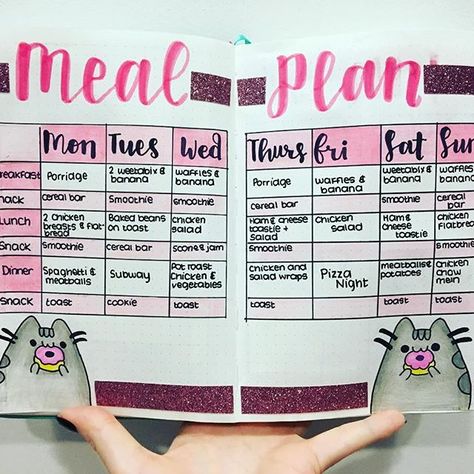 Meal Plan
Mon Tues Wed Thurs Fri Sat Sun
Breakfast
Porridge
2 weetabix &
banana
waffles &
banana
Porridge
waffles &
banana
weetabix &
banana
waffles &
banana
Snack
cereal bar
Smoothie
smoothie
cereal bar
smoothie
cereal
bar
Lunch
2 chicken
breasts & flat-
bread
Baked beans
on toast
chicken
salad
Ham & cheese
toastie +
salad
chicken
salad
Ham &
cheese
toastie
chicken
flatbread
Snack
smoothie
cereal bar
scone & jam
smoothie
smoothie
Dinner
Spaghetti &
meatballs
Subway
Pot roast
chicken &
vegetables
chicken and
salad wraps
Pizza
Night
meatballs &
potatoes
chicken
chow
mein
Snack
toast
cookie
toast
toast
toast
toast